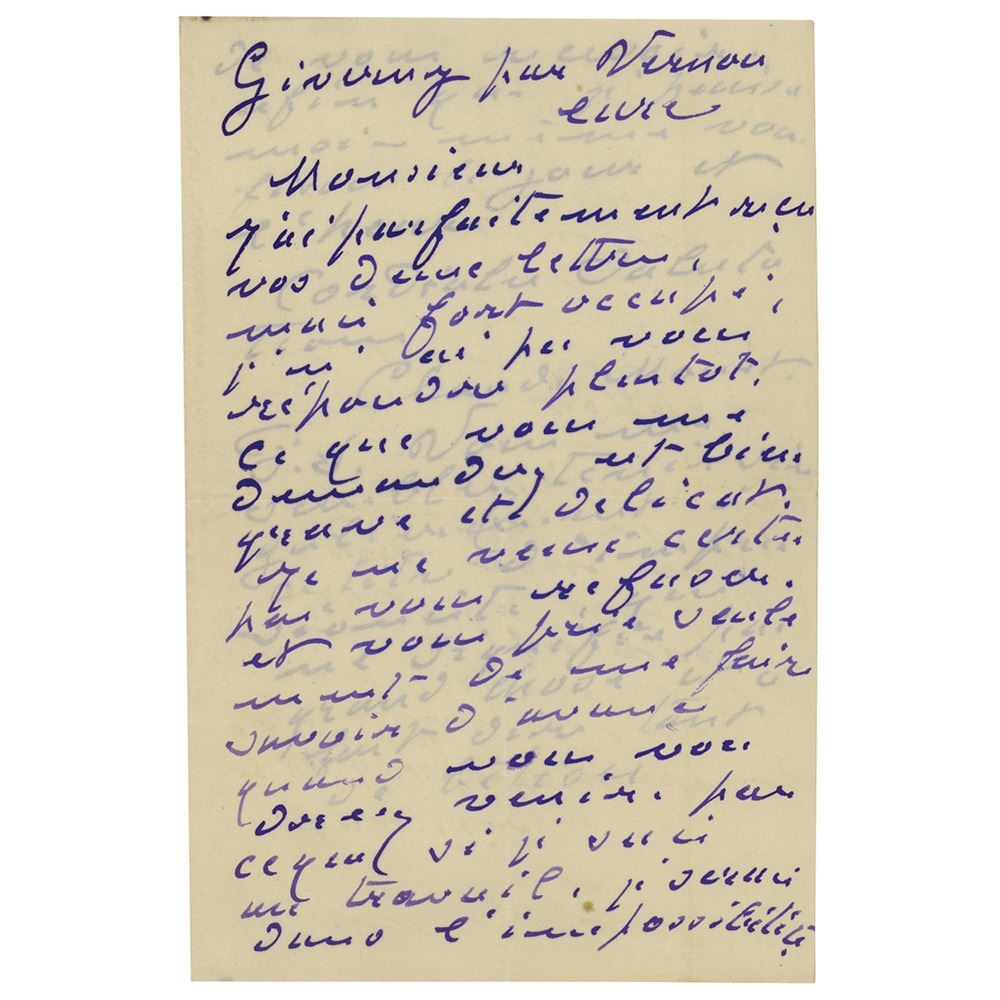 Giverny par Vernon
eure
Monsieur
j'ai parfaitement reçu
vos deux lettres,
mais fort occupé,
je n'ai pu vous
répondre plutot.
Ce que vous me
demandez est bien
grave et délicat.
Je ne veux certes
pas vous refuser.
et vous prie seule
ment de me faire
savoir d'avance
quand vous vou
drez venir. par
ceque si je suis
au travail, je serais
dans l'impossibilité